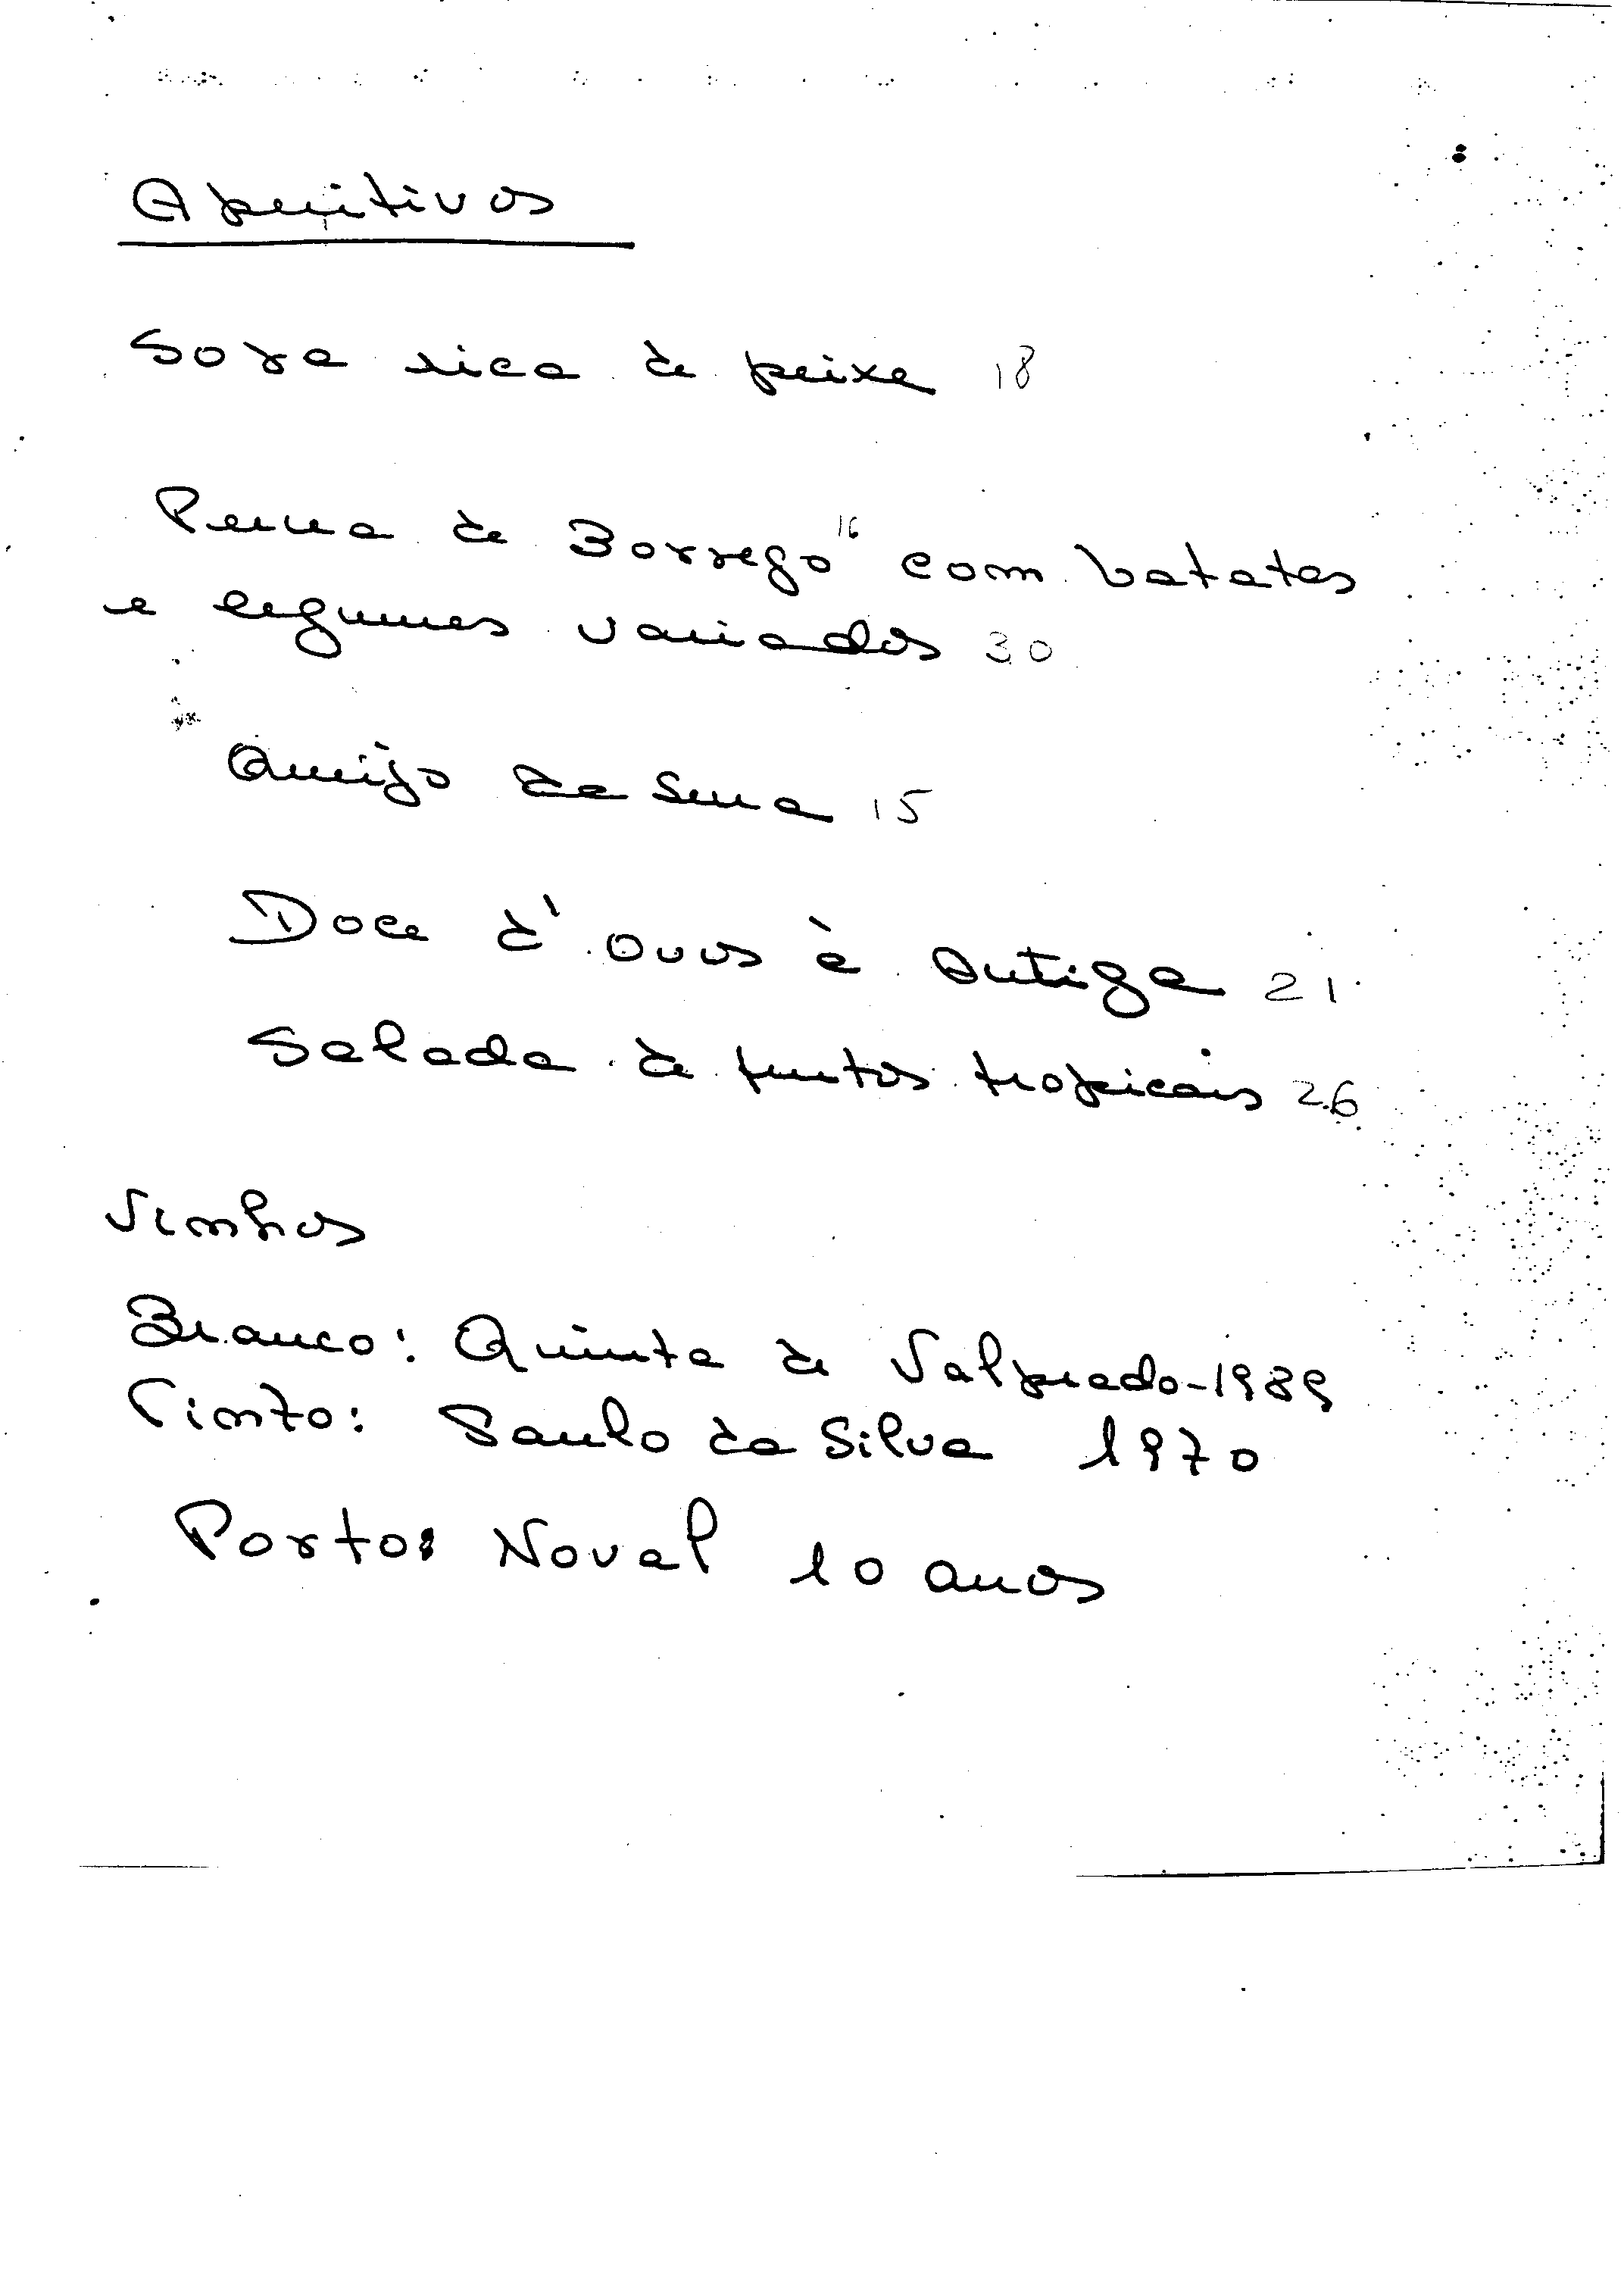 Aperitivos
Sopa rica de peixe 18
Perna de Borrego 16 com batatas
e legumes variados 30
Queijo da Serra 15
Doce d' ovos à Antiga 21
Salada de frutos tropicais 26
Vinhos
Branco: Quinta de Valprado-1989
Tinto: Paulo da Silva 1970
Porto: Noval 10 anos